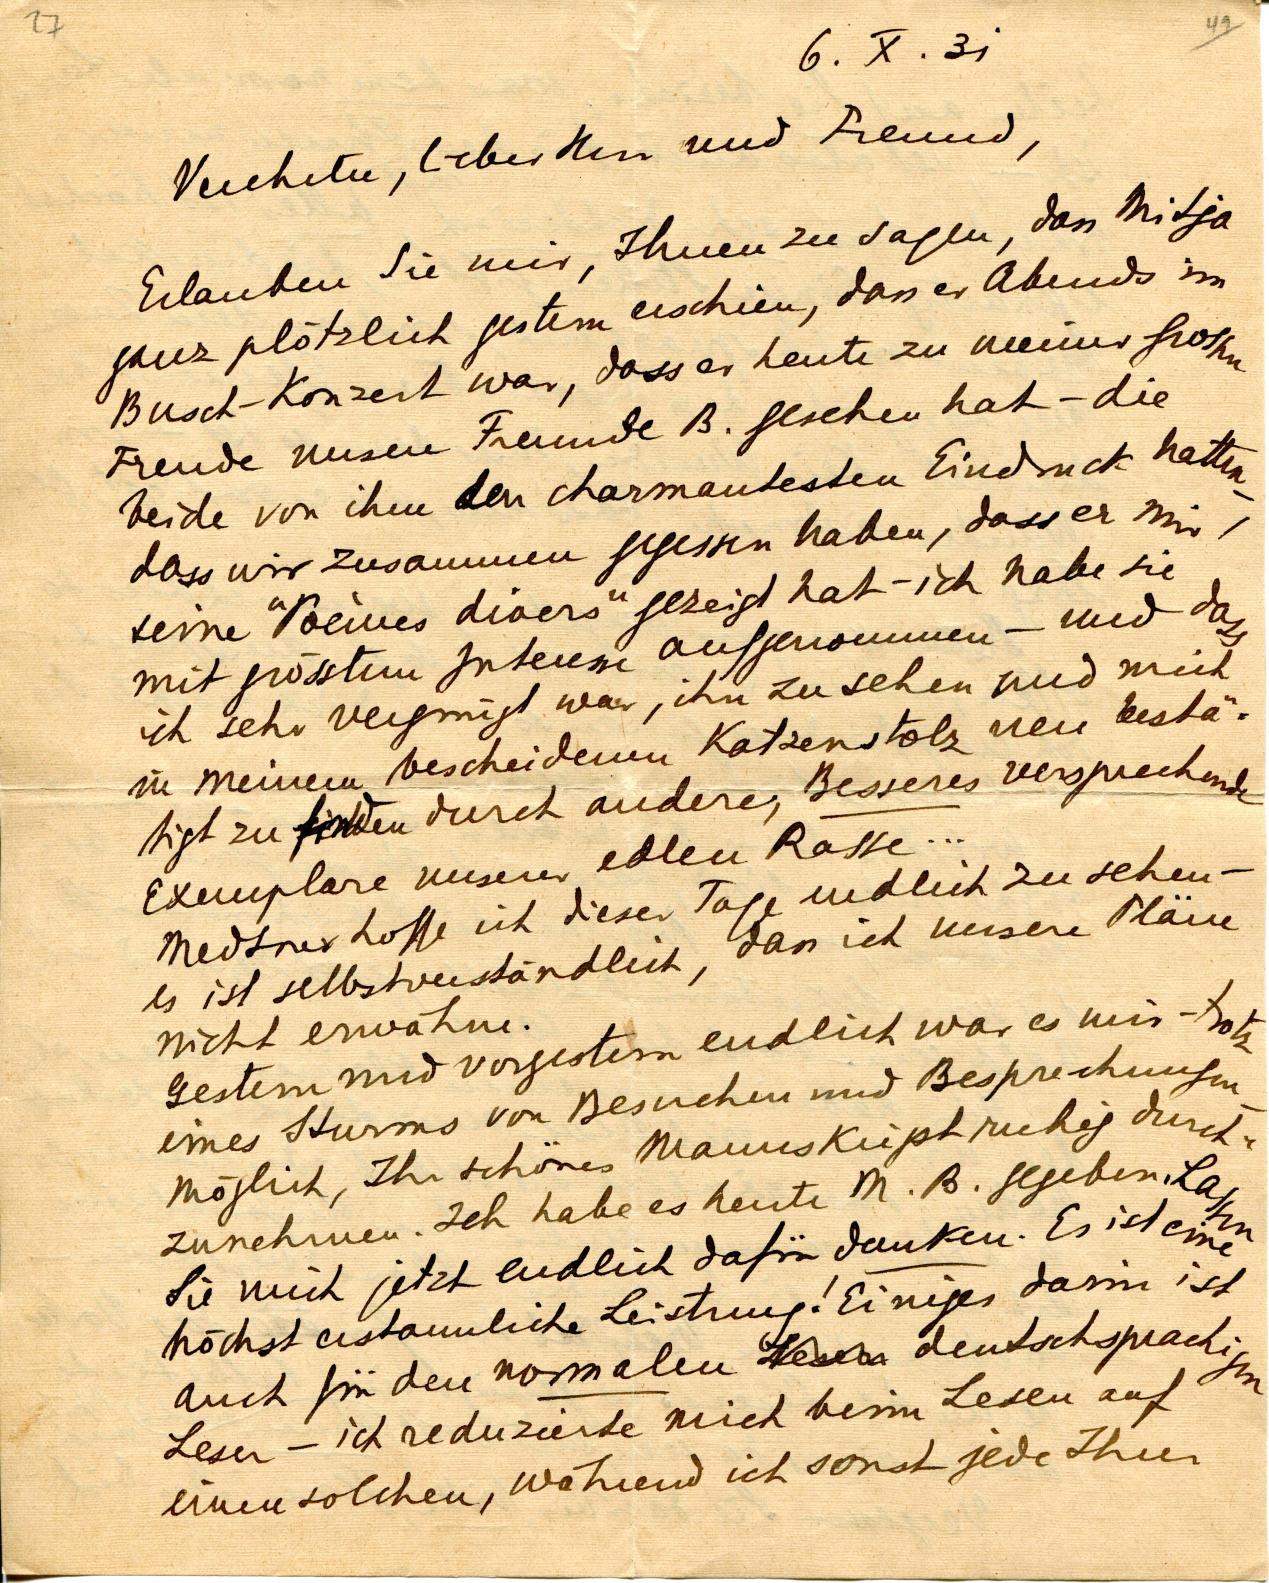 27
49
6. X. 31
Verehrter, lieber Herr und Freund,
Erlauben Sie mir, Ihnen zu sagen, dass Mitja
ganz plötzlich gestern erschien, dass er Abends im
Busch-Konzert war, dass er heute zu meiner grossen
Freude unsere Freunde B. gesehen hat – die
beide von ihm den charmantesten Eindruck hatten –
dass wir zusammen gegessen haben, dass er mir
seine "Poèmes divers" gezeigt hat – ich habe sie
mit grösstem Interesse aufgenommen – und dass
ich sehr vergnügt war, ihn zu sehen und mich
in meinem bescheidenen Katzenstolz neu bestä-
tigt zu finden durch andere, Besseres versprechende
Exemplare unserer edlen Rasse...
Medtner hoffe ich dieser Tage endlich zu sehen –
es ist selbstverständlich, dass ich unsere Pläne
nicht erwähne.
Gestern und vorgestern endlich war es mir – trotz
eines Sturms von Besuchen und Besprechungen –
möglich, Ihr schönes Manuskript ruhig durch-
zunehmen. Ich habe es heute M. B. gegeben. Lassen
Sie mich jetzt endlich dafür danken. Es ist eine
höchst erstaunliche Leistung! Einiges darin ist
auch für den normalen deutschsprachigen
Leser – ich reduzierte mich beim Lesen auf
einen solchen, während ich sonst jede Ihrer